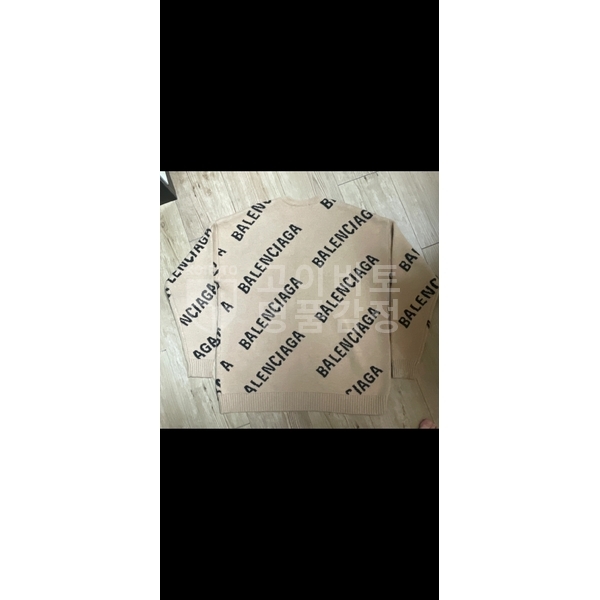 BALENCIAGA
BALENCIAGA
BALENCIAGA
BALENCIAGA
BALENCIAGA
ALENCIAGA
NCIAGA
AGA
A
A
CIAGA
고이비토
명품감정